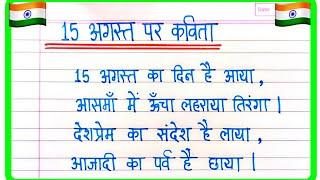 15 अगस्त पर कविता
15 अगस्त का दिन है आया,
आसमाँ में ऊँचा लहराया तिरंगा।
देशप्रेम का संदेश है लाया,
आजादी का पर्व है छाया।